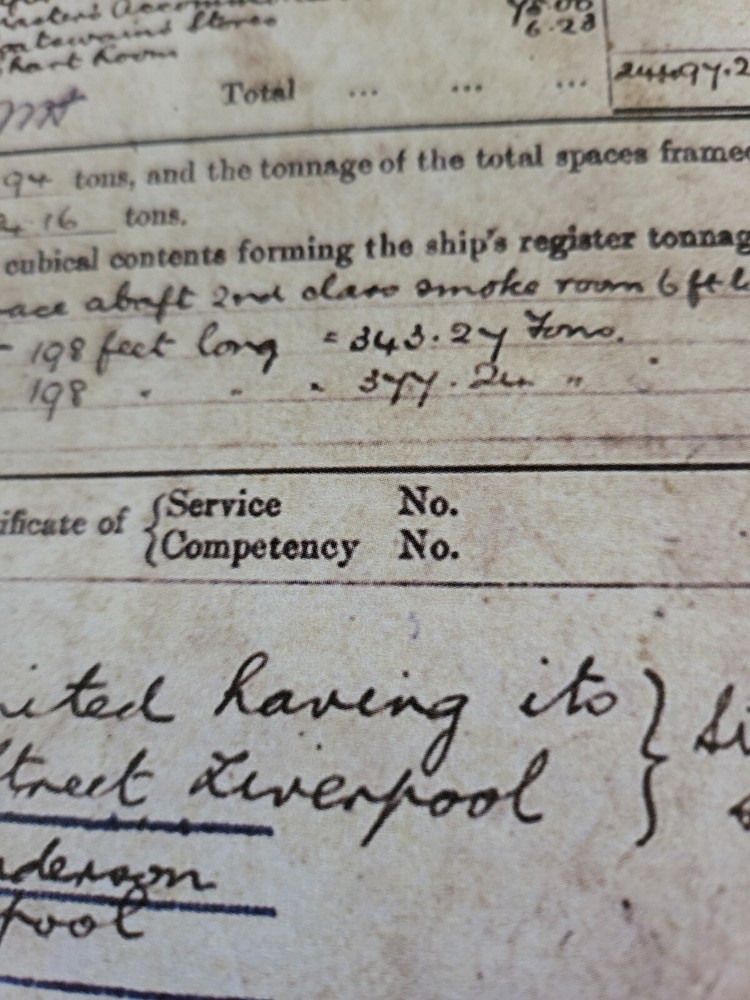 75.00
Boatswains Stores 6.28
Chart Room
Total ... ... ... 24497.2
94 tons, and the tonnage of the total spaces framed
4.16 tons.
cubical contents forming the ship's register tonnag
ace abaft 2nd class smoke room 6 ft l
198 feet long = 343.27 Tons.
198 " " " 377.24 "
ificate of { Service No.
{ Competency No.
ited having its }
Street Liverpool
derson
pool